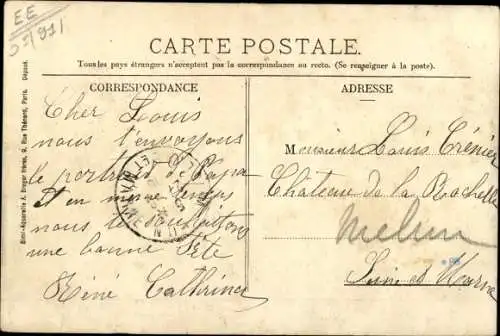 EE
CARTE POSTALE.
Tous les pays étrangers n'acceptent pas la correspondance au recto. (Se renseigner à la poste).
CORRESPONDANCE
Cher Louis
nous t'envoyons
le portrait de Papa
Et en même temps
nous te souhaitons
une bonne Fête
Réné Cathrine
ADRESSE
Monsieur Louis Trénier
Château de la Rochelle
Melun
Seine et Marne
Simi-Aquarelle A. Breger frères, 9, Rue Thénard, Paris. Déposé.